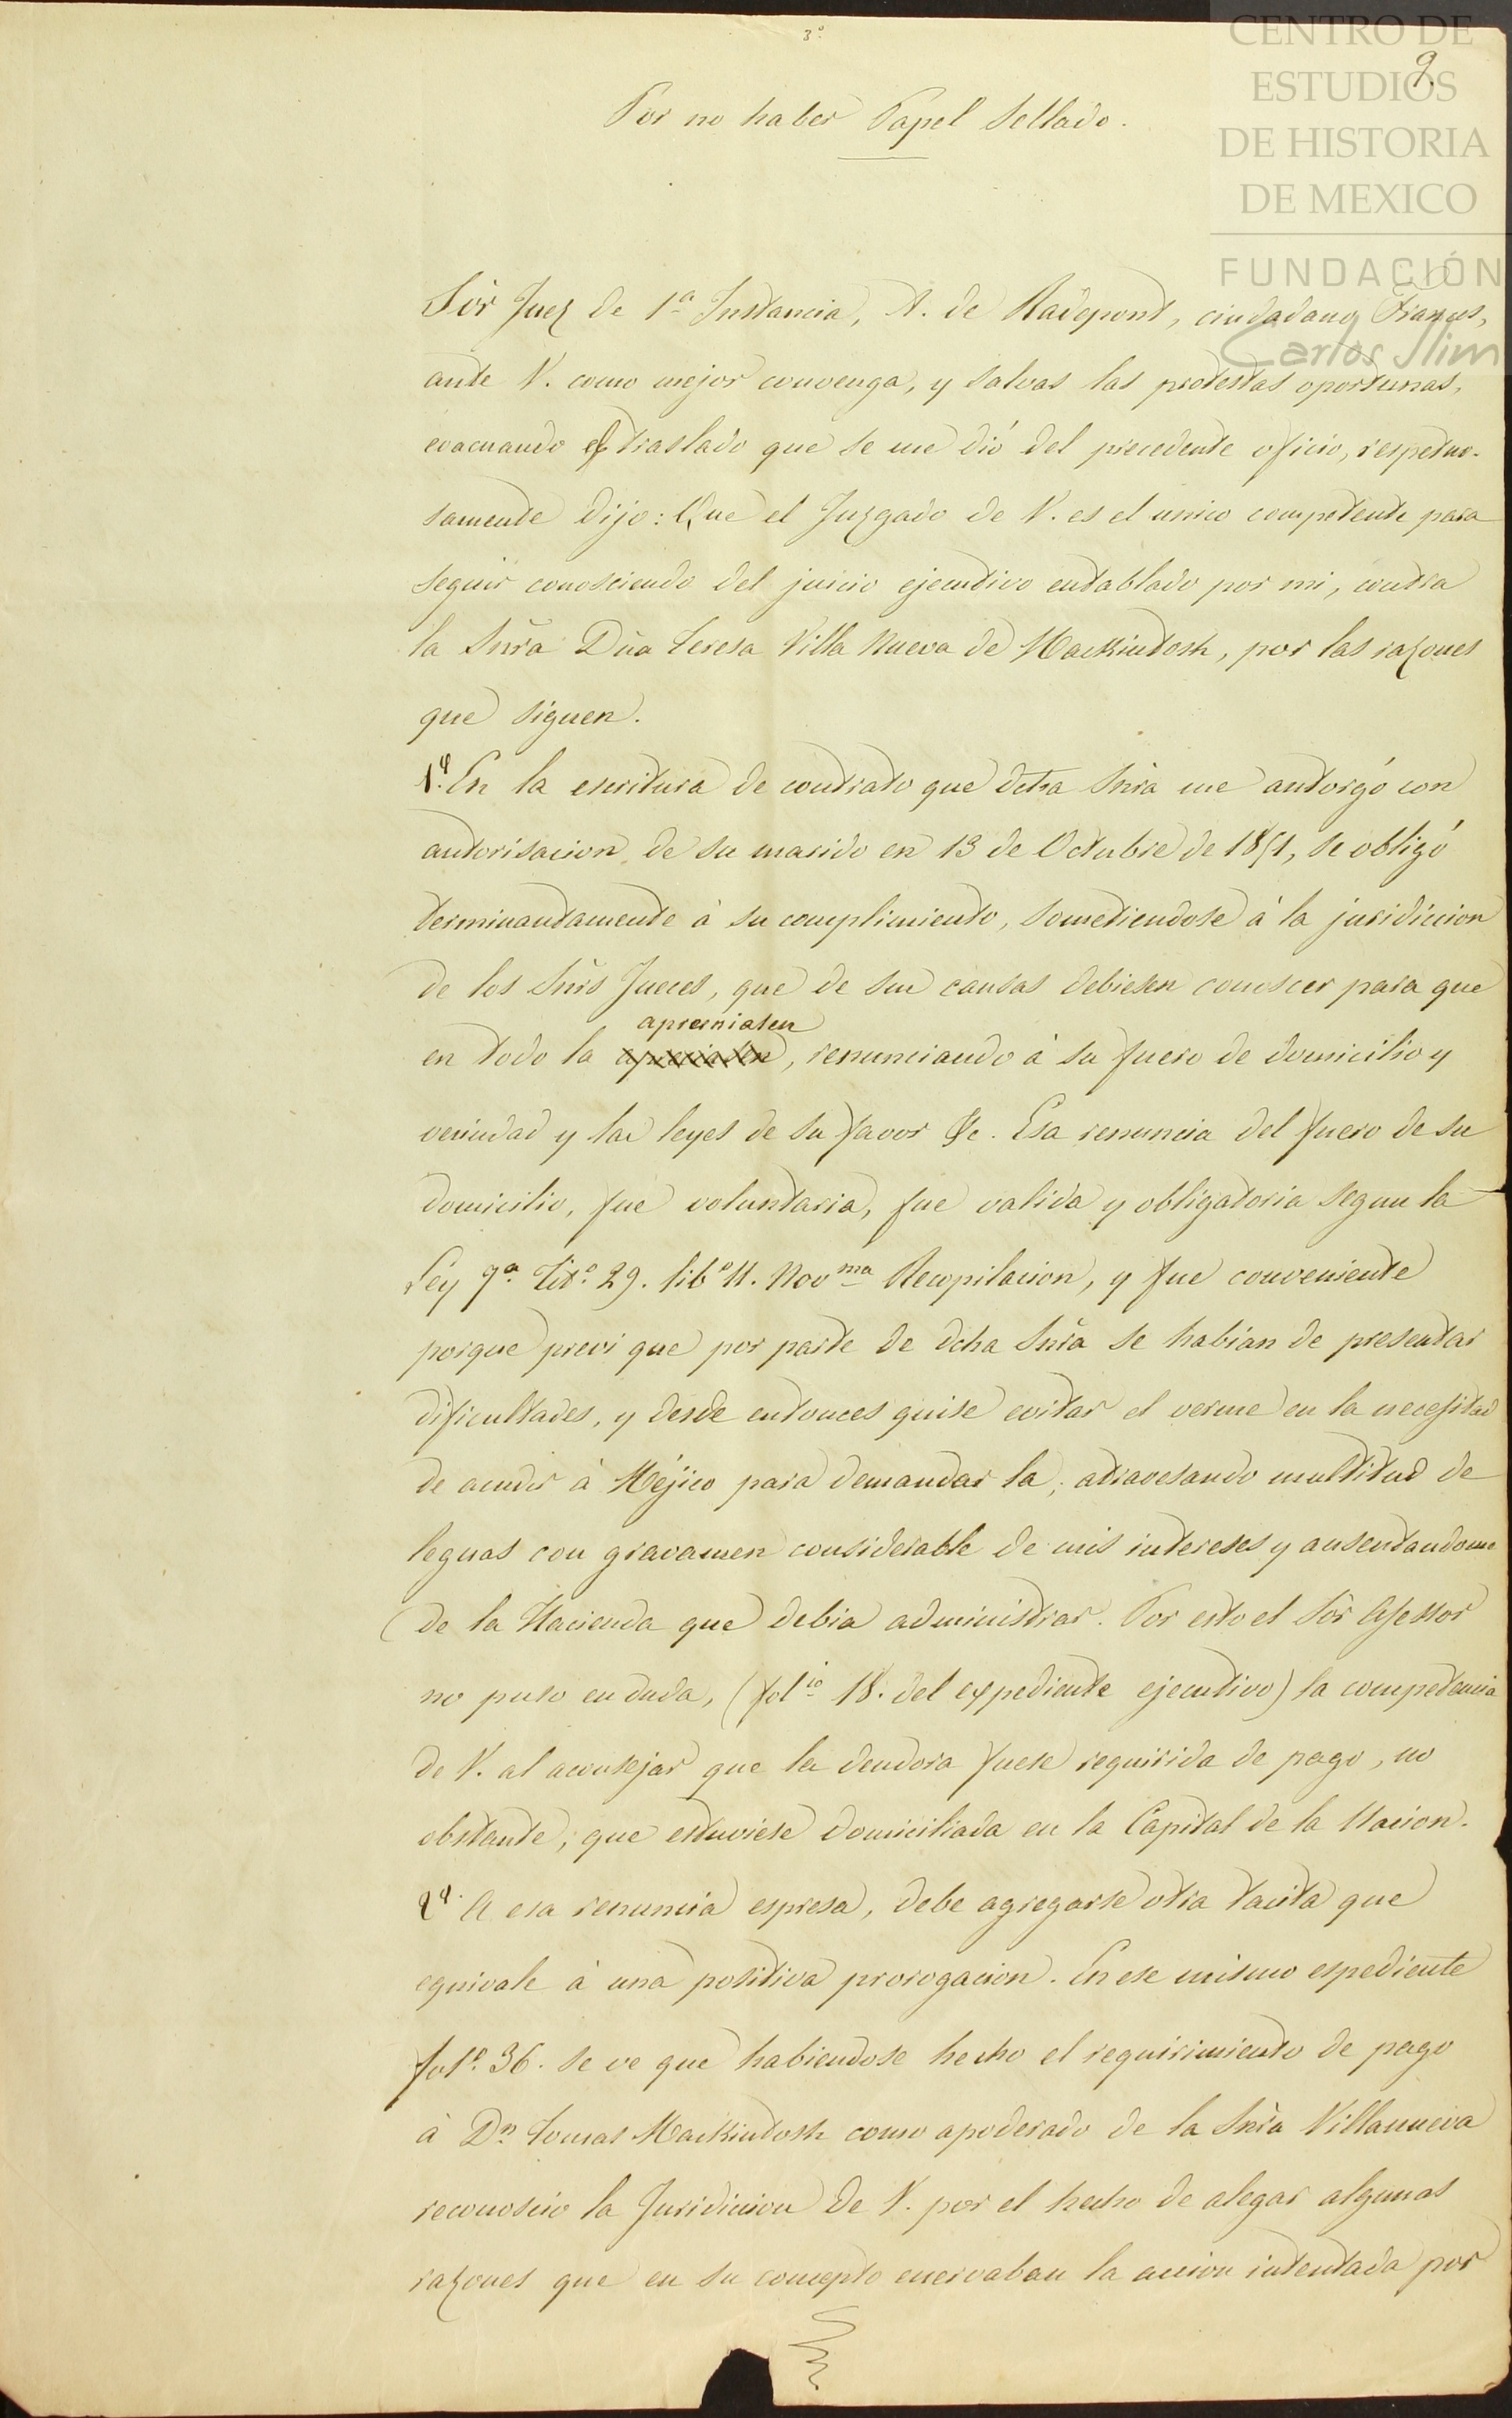 3º
9.
CENTRO DE
ESTUDIOS
DE HISTORIA
DE MEXICO
FUNDACIÓN
Carlos Slim
Por no haber Papel Sellado.
Sòr Juez de 1ª Instancia, A. de Radepont, ciudadano Frances,
ante V. como mejor convenga, y salvas las protestas oportunas,
evacuando el traslado que se me dió del precedente oficio, respetuo-
samente dijo: Que el Juzgado de V. es el unico competente para
seguir conosciendo del juicio ejecutivo entablado por mi, contra
la Snra Dña Teresa Villa Nueva de Mackintosh, por las razones
que siguen.
1ª. En la escritura de contrato que dcha Snra me autorgó con
autorisacion de su marido en 13 de Octubre de 1851, se obligó
terminantamente à su complimiento, sometiendose à la juridiccion
de los Snrs Jueces, que de sus causas debiesen conoscer para que
apremiasen
en todo la , renunciando à su fuero de domicilio y
vecindad y las leyes de su favor &c. Esa renuncia del fuero de su
domicilio, fue voluntaria, fue valida y obligatoria segun la
Ley 7ª. Titº. 29. libº 11. Novma Recopilacion, y fue conveniente
porque previ que por parte de dcha Snra se habian de presentar
dificultades, y desde entonces quise evitar el verme en la necesitad
de acudir à Méjico para demandar la, atravesando multitud de
leguas con gravamen considerable de mis intereses y ausentandome
de la Hacienda que debia administrar. Por esto el Sòr Asessor
no puso en duda, (folio 18. del expediente ejecutivo) la competencia
de V. al aconsejar que la deudora fuese requirida de pago, no
obstante, que estuviese domiciliada en la Capital de la Nacion.
2ª. A esa renuncia espresa, debe agregarse otra tacita que
equivale à una positiva prorogacion. En ese mismo espediente
folº. 36. se ve que habiendose hecho el requirimiento de pago
à Dn Tomas Mackintosh como apoderado de la Snra Villanueva
reconoscio la Juridicion de V. por el hecho de alegar algunas
razones que en su concepto enervaban la accion intentada por